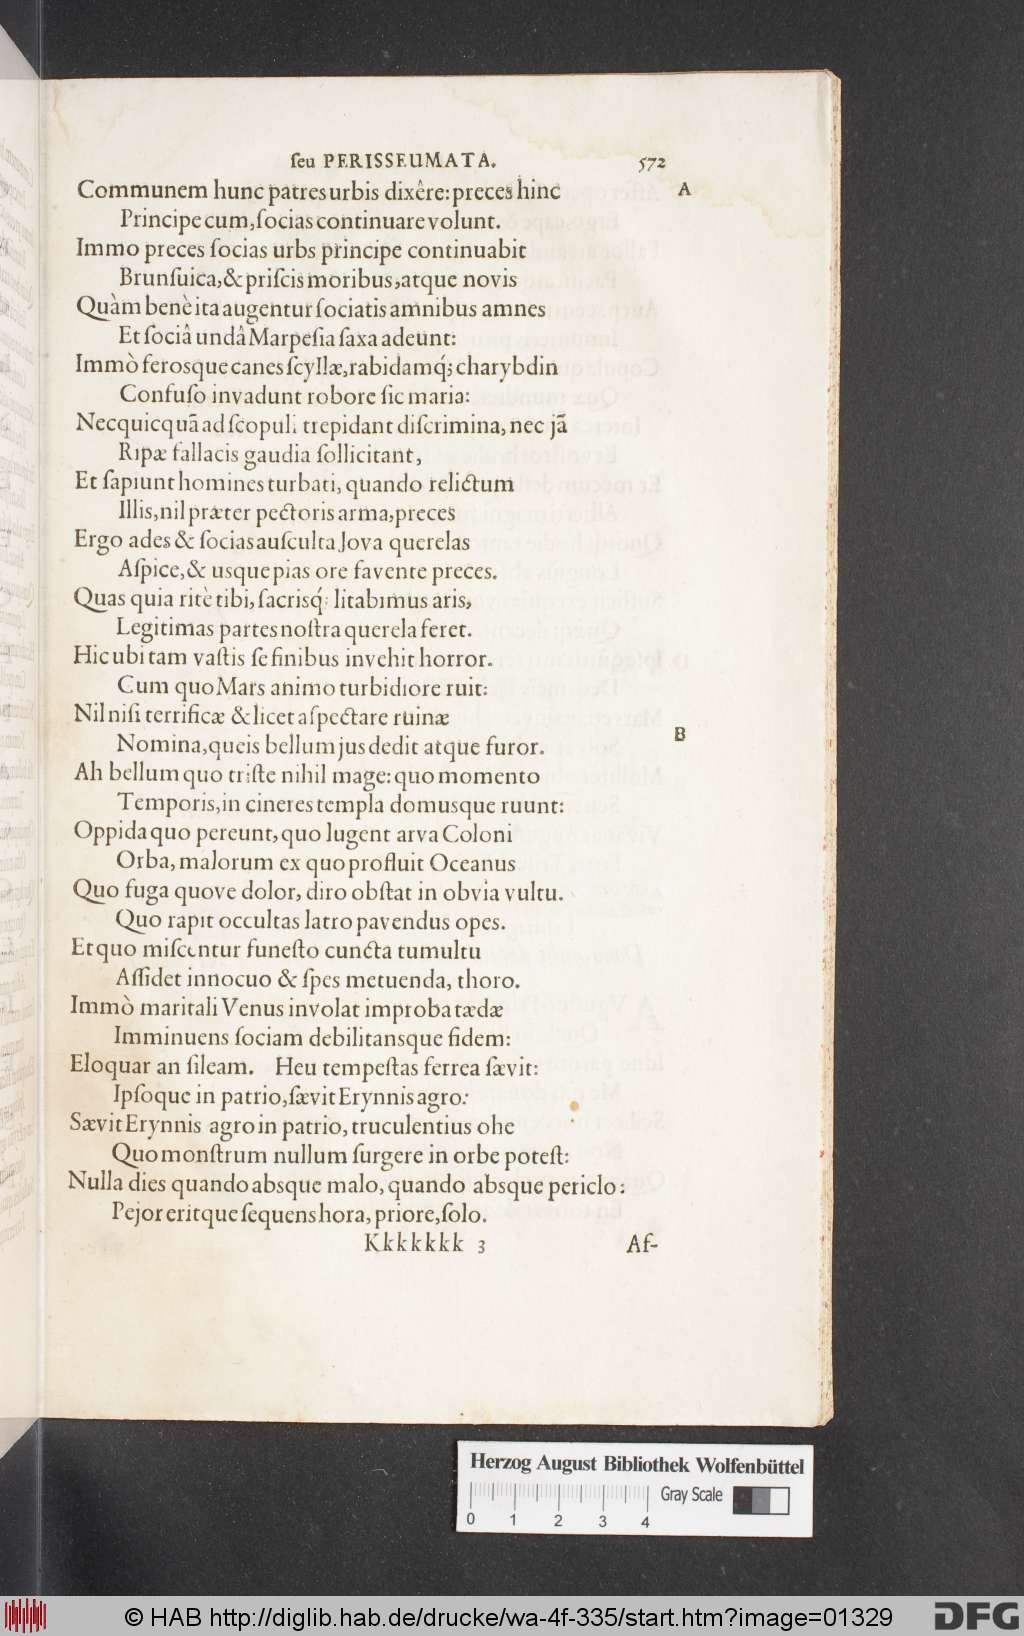 ſeu PERISSEUMATA. 572
Communem hunc patres urbis dixêre: preces hinc A
Principe cum, ſocias continuare volunt.
Immo preces ſocias urbs principe continuabit
Brunſuica, & priſcis moribus, atque novis
Quàm benè ita augentur ſociatis amnibus amnes
Et ſociâ undâ Marpeſia ſaxa adeunt:
Immò ferosque canes ſcyllæ, rabidamq́; charybdin
Confuſo invadunt robore ſic maria:
Necquicquã ad ſcopuli trepidant diſcrimina, nec jã
Ripæ fallacis gaudia ſollicitant,
Et ſapiunt homines turbati, quando relictum
Illis, nil præter pectoris arma, preces
Ergo ades & ſocias auſculta Jova querelas
Aſpice, & usque pias ore favente preces.
Quas quia ritè tibi, ſacrisq́; litabimus aris,
Legitimas partes noſtra querela feret.
Hic ubi tam vaſtis ſe finibus invehit horror.
Cum quo Mars animo turbidiore ruit:
Nil niſi terrificæ & licet aſpectare ruinæ
Nomina, queis bellum jus dedit atque furor. B
Ah bellum quo triſte nihil mage: quo momento
Temporis, in cineres templa domusque ruunt:
Oppida quo pereunt, quo lugent arva Coloni
Orba, malorum ex quo profluit Oceanus
Quo fuga quove dolor, diro obſtat in obvia vultu.
Quo rapit occultas latro pavendus opes.
Et quo miſcentur funeſto cuncta tumultu
Aſſidet innocuo & ſpes metuenda, thoro.
Immò maritali Venus involat improba tædæ
Imminuens ſociam debilitansque fidem:
Eloquar an ſileam. Heu tempeſtas ferrea ſævit:
Ipſoque in patrio, ſævit Erynnis agro:
Sævit Erynnis agro in patrio, truculentius ohe
Quo monſtrum nullum ſurgere in orbe poteſt:
Nulla dies quando absque malo, quando absque periclo:
Pejor eritque ſequens hora, priore, ſolo.
Kkkkkkk 3 Aſ-
Herzog August Bibliothek Wolfenbüttel
Gray Scale
0 1 2 3 4
© HAB http://diglib.hab.de/drucke/wa-4f-335/start.htm?image=01329 DFG